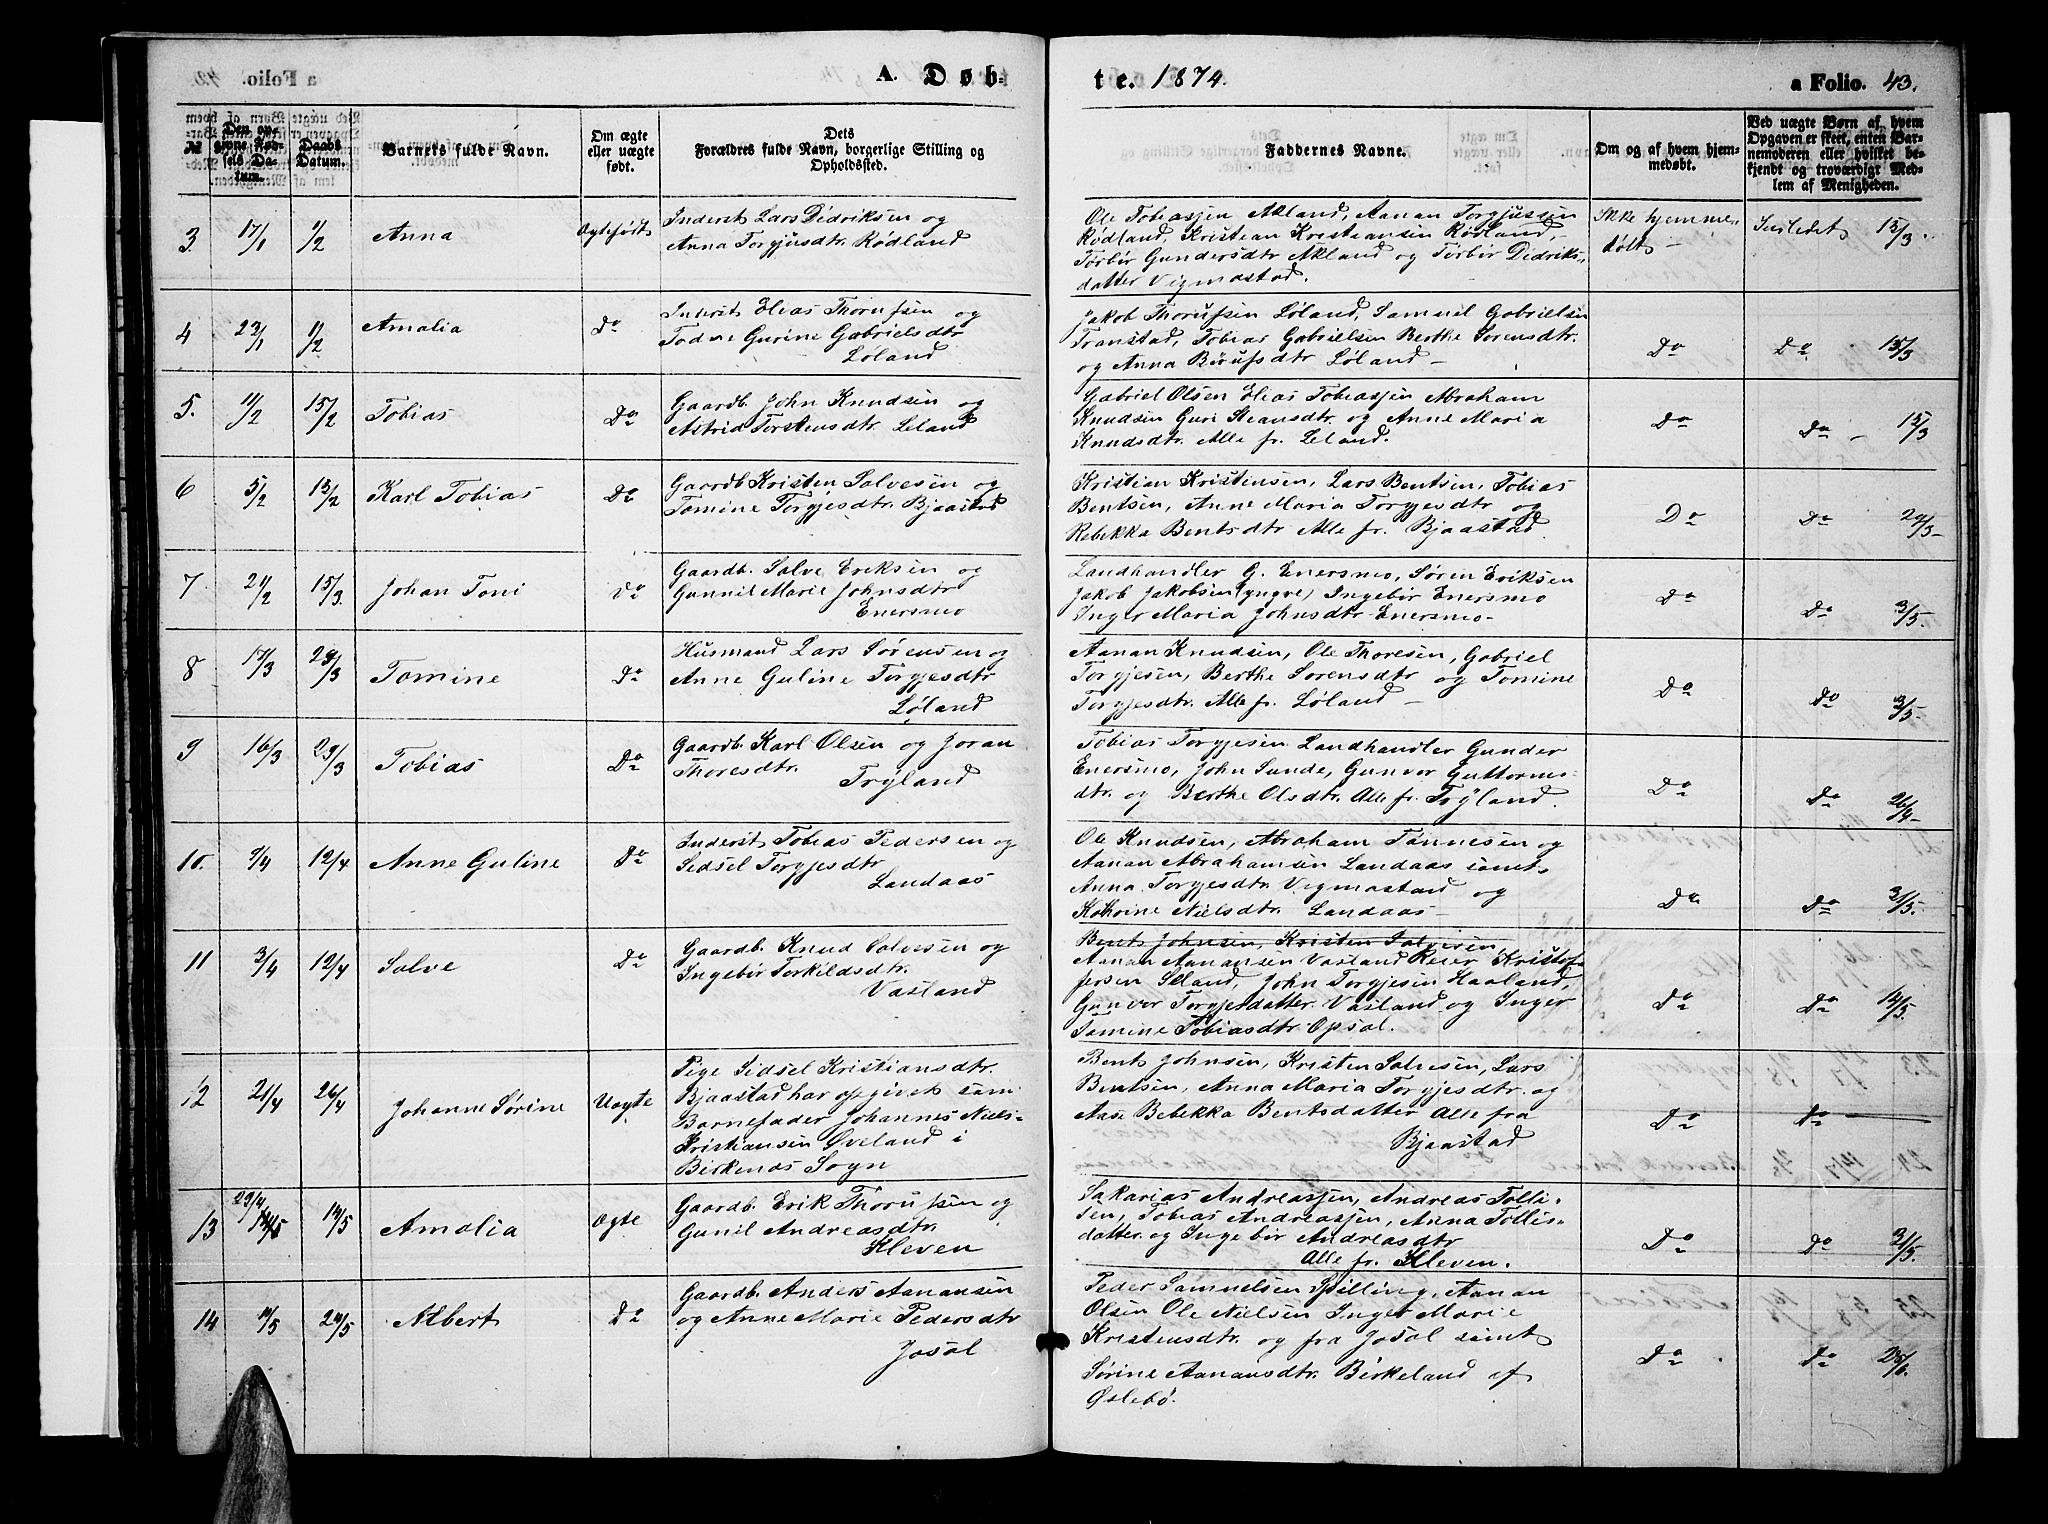 A. Døb-
te. 1874.
a Folio. 43.
№
Den opgivne Fødsels Datum.
Daabs Datum.
Barnets fulde Navn.
Om ægte eller uægte født.
Dets Forældres fulde Navn, borgerlige Stilling og Opholdssted.
Faddernes Navne.
Om og af hvem hjemmedøbt.
Ved uægte Børn af hvem Opgaven er skeet, enten Barnemoderen eller hvilket bekjendt og troværdigt Medlem af Menigheden.
3. 17/1 1/2 Anna Ægtefødt
Inderst Lars Didriksen og
Anna Torgjusdtr. Rødland
Ole Tobiassen Akland, Aanan Torgjussen
Rødland, Kristian Kristiansen Rødland,
Torbør Gundersdtr Akland og Torbør Didriks-
datter Vigmostad.
Ikke hjemme-
døbt –
Indledet 15/3.
4 23/1 1/2 Amalia Do
Inderst Elias Thorufsen og
Todne Gurine Gabrielsdtr
Løland
Jakob Thorufsen Løland, Samuel Gabrielsen
Transtad, Tobias Gabrielsen Berthe Sørensdtr.
og Anna Børufsdtr Løland –
Do Do 15/3
5. 11/2 15/2 Tobias Do
Gaardb. John Knudsen og
Astrid Torstensdtr. Leland
Gabriel Olsen Elias Tobiassen Abraham
Knudsen Guri Steansdtr. og Anne Maria
Knudsdtr. Alle fr. Leland.
Do Do – 15/3
6 5/2 15/2 Karl Tobias Do
Gaardb Kristen Salvesen og
Tomine Torgjesdtr. Bjaastad
Kristian Kristensen, Lars Bentsen, Tobias
Bentsen, Anne Maria Torgjesdtr og
Rebekka Bentsdtr Alle fr. Bjaastad.
Do Do 29/3 –
7 21/2 15/3. Johan Toni Do
Gaardb. Salve Eriksen og
Gunnil Marie Johnsdtr
Enersmo
Landhandler G. Enersmo, Søren Eriksen
Jakob Jakobsen (yngre) Ingebør Enersmo
Inger Maria Johnsdtr Enersmo –
Do Do 3/5.
8 17/3 29/3 Tomine Do
Husmand Lars Sørensen og
Anne Guline Torgjesdtr
Løland
Aanan Knudsen, Ole Thoresen, Gabriel
Torgjesen, Berthe Sørensdtr og Tomine
Torgjesdtr. Alle fr. Løland –
Do Do 3/5.
9 16/3 29/3 Tobias Do
Gaardb. Karl Olsen og Joran
Thoresdtr. Trÿland
Tobias Torgjesen Landhandler Gunder
Enersmo, John Sunde, Gunvor Guttorms-
dtr. og Berthe Olsdtr. Alle fr. Trÿland.
Do Do 26/4 –
10. 9/4 12/4 Anne Guline Do
Inderst Tobias Pedersen og
Sidsel Torgjesdtr.
Landaas
Ole Knudsen, Abraham Tønnesen og
Aanan Abrahamsen Landaas samt
Anna Torgjesdtr Vigmostad og
Kathrine Nielsdtr. Landaas –
Do. Do 31/5.
11 3/4 12/4 Salve Do
Gaardb. Knud Salvesen og
Ingebør Torkildsdtr.
Vasland
Bent Johnsen, Kristen Salvesen
Aanan Aanansen Vasland Reier Kristof-
fersen Seland, John Torgjesen Haaland,
Gunvor Torgjesdatter Vasland og Inger
Tomine Tobiasdtr Opsal.
Do Do 14/5.
12 21/4 26/4 Johanne Sørine Uægte
Pige Sidsel Kristiansdtr.
Bjaastad har opgivet som
Barnefader Johannes Niels-
Kristiansen Øveland i
Birkenæs Sogn
Bent Johnsen, Kristen Salvesen, Lars
Bentsen, Anna Maria Torgjesdtr. og
Aase Bebekka Bentsdatter Alle fra
Bjaastad
Do Do –
13 29/4 14/5 Amalia Ægte
Gaardb. Erik Thorufsen og
Gunil Andreasdtr.
Kleven
Sakarias Andreassen, Andreas Tolli-
sen, Tobias Andreassen, Anna Tollis-
datter og Ingebør Andreasdtr
Alle fr. Kleven.
Do Do 31/5.
14 11/5 24/5 Albert Do
Gaardb. Anders Aanansen
og Anne Marie Pedersdtr
Josal
Peder Samuelsen Spilling, Aanan
Olsen Ole Nielsen Inger Marie
Kristensdtr. og fra Josal samt
Sørine Aanansdtr. Birkeland af
Øslebø.
Do. Do 28/6.